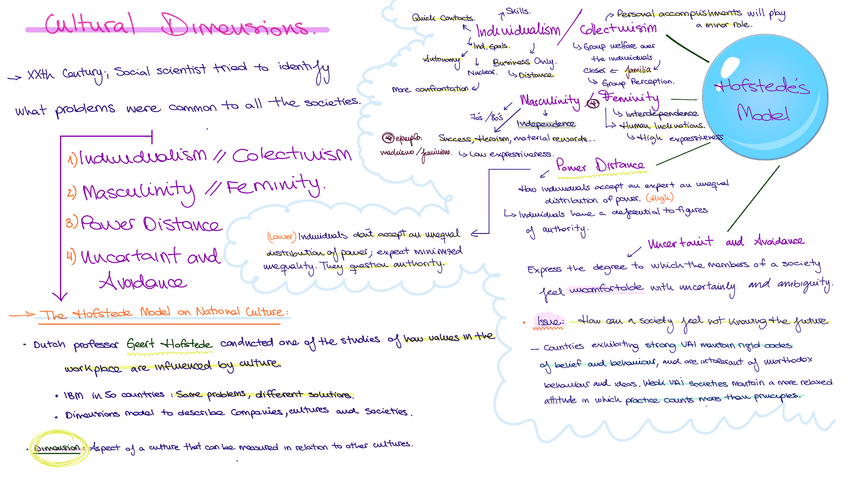 Cultural Dimensions.
→ XXth Century; Social scientist tried to identify
what problems were common to all the societies.
1) Individualism // Colectivism
2) Masculinity // Feminity.
3) Power Distance
4) Uncertaint and
Avoidance
→ The Hofstede Model on National Culture:
• Dutch professor Geert Hofstede conducted one of the studies of how values in the
workplace are influenced by culture.
• IBM in 50 countries: Same problems, different solutions.
• Dimensions model to describe companies, cultures and societies.
• Dimension: Aspect of a culture that can be measured in relation to other cultures.
Hofstede's
Model
Individualism
Skills.
Quick Contacts.
Ind. goals.
Autonomy
Nuclear.
Business Only.
Distance
More confrontation
Colectivism
Personal accomplishments will play
a minor role.
Group welfare over
the individuals
closer ← familia
Group Perception.
Masculinity
70s/80s
Independence
Success, Heroism, material rewards...
Low expressiveness.
ejemplo.
Feminity
Interdependence
Human Inclinations.
High expressiveness
Power Distance
How individuals accept an expert an unequal
distribution of power. (High)
Individuals have a deferential to figures
of authority.
(Lower) Individuals don't accept an unequal
distribution of power; expect minimized
inequality. They question authority.
Uncertaint and Avoidance
Express the degree to which the members of a society
feel uncomfortable with uncertainty and ambiguity.
• Issue: How can a society feel not knowing the future
— Countries exhibiting strong UAI maintain rigid codes
of belief and behaviour, and are intolerant of unorthodox
behaviour and ideas. Weak UAI societies maintain a more relaxed
attitude in which practice counts more than principles.